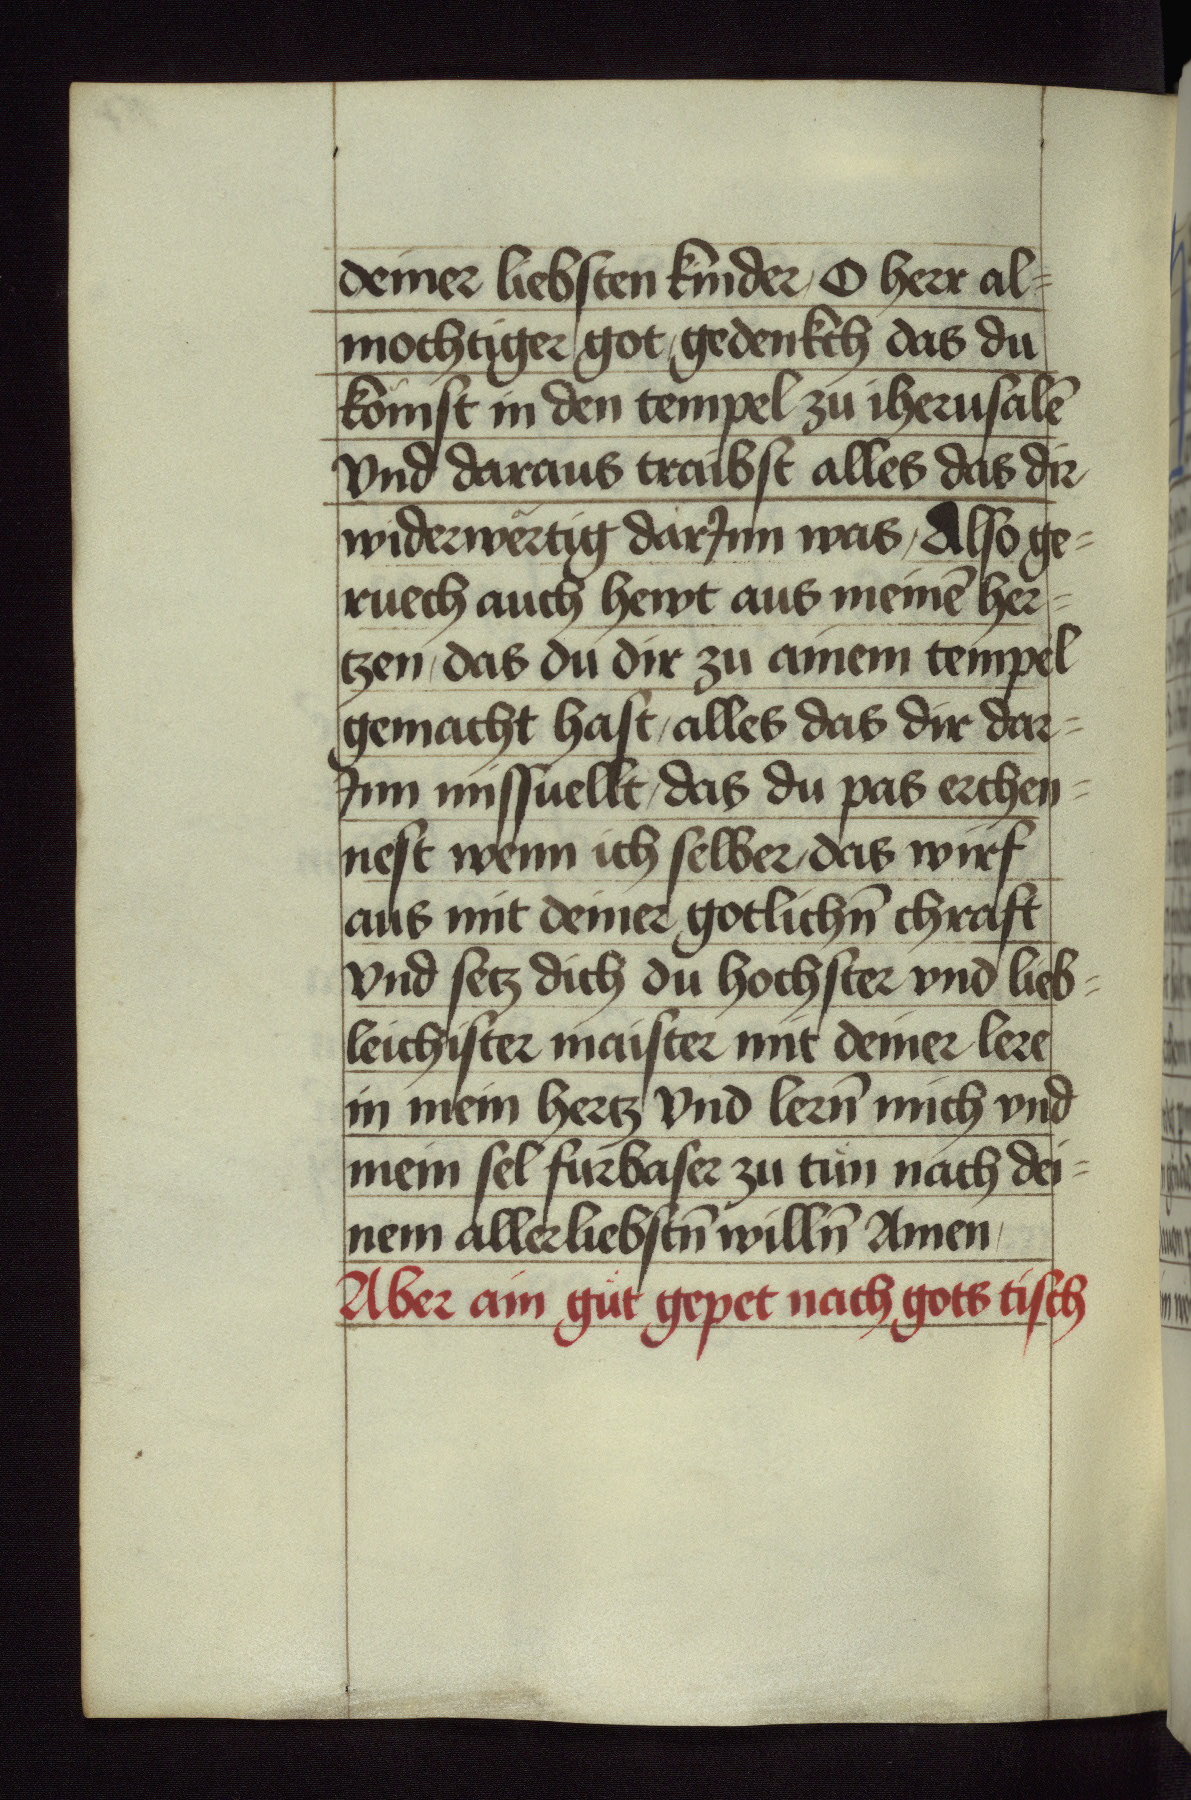 deiner liebsten kinder, O herr al=
mochtiger got, gedenkch das du
komst in den tempel zu iherusalē
Vnd daraus traibst alles das dir
widerwërtig darJnn was, Also ge=
ruech auch hewt aus meinē her=
tzen, das du dir zu ainem tempel
gemacht hast, alles das dir dar=
Jnn missuellt, das du pas erchen=
nest wenn ich selber, das wirf
aus mit deiner gotlichn̄ chraft
Vnd setz dich du hochster vnd lieb=
leichister maister mit deiner lere
in mein hertz Vnd lern̄ mich vnd
mein sel furbaser zu tün nach dei=
nem allerliebstn̄ willn̄ Amen,
Aber ain güt gepet nach gots tisch